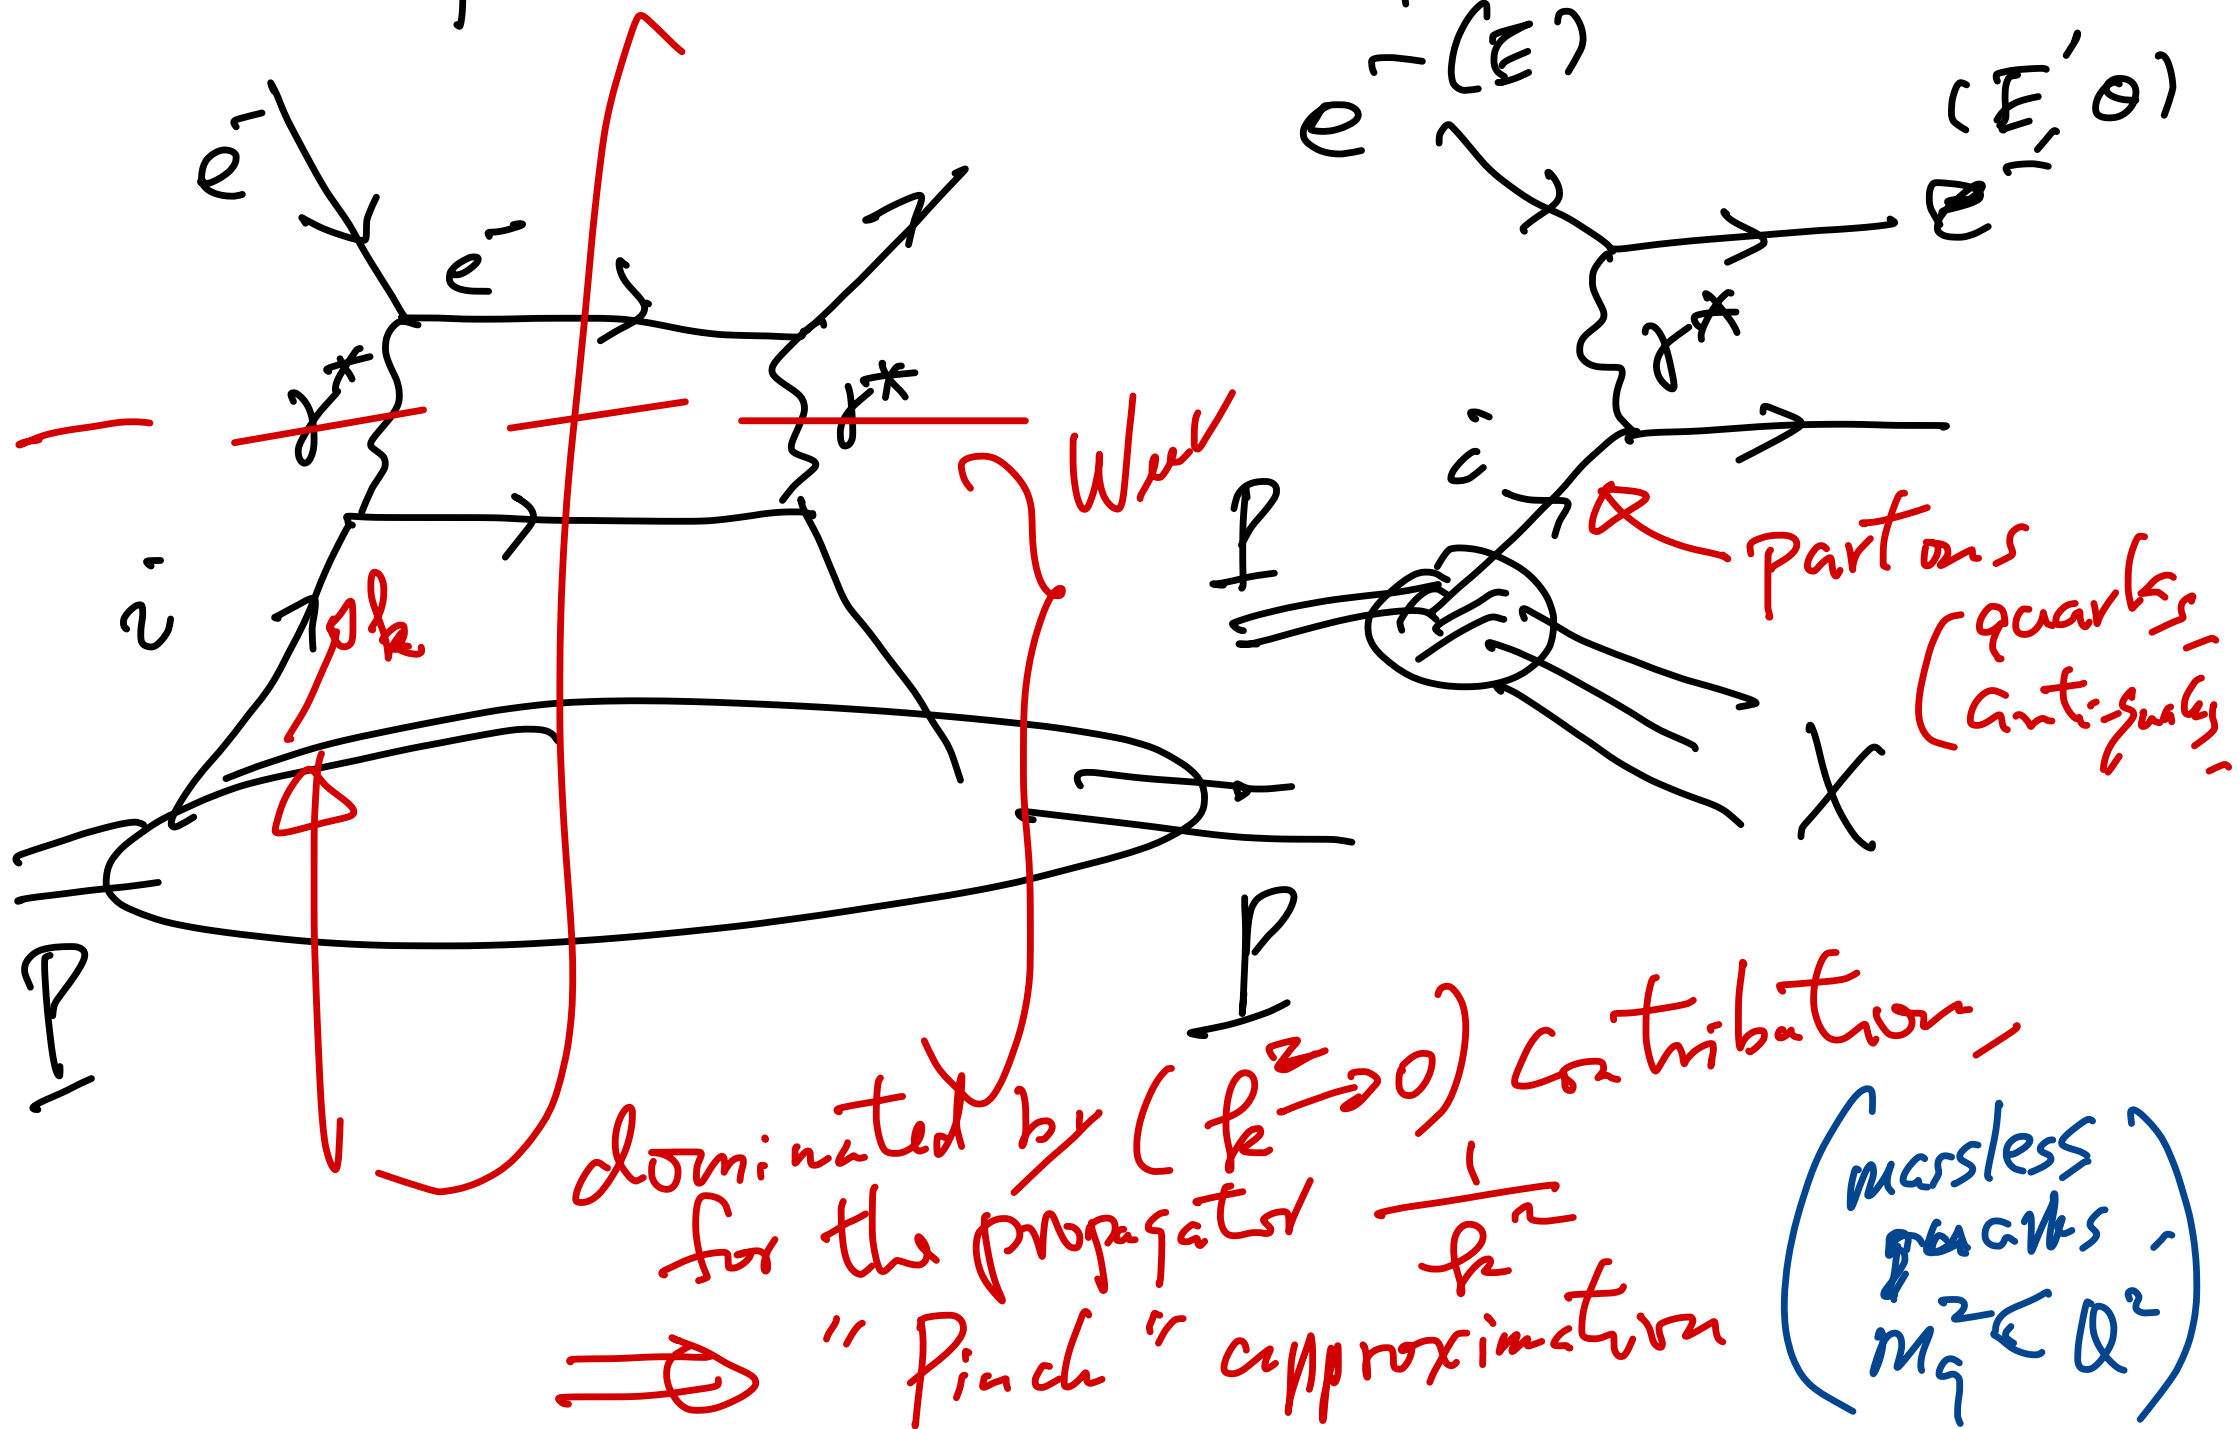 e⁻
e⁻
γ*
γ*
W^{μν}
i
k
P
P
e⁻(E)
(E', θ)
e⁻'
γ*
i
P
partons
(quarks,
anti-quarks,
X
dominated by (k²→0) contribution,
for the propagator 1/k²
⇒ "Pinch" approximation
(massless
quarks
m_q² < Q²)